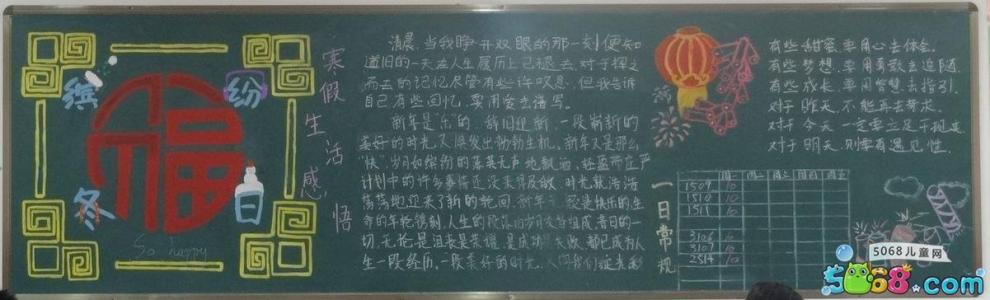 缤纷
福
冬日
So happy
寒假生活感悟
清晨,当我睁开双眼的那一刻便知
道旧的一天在人生履历上已褪去,对于挥之
而去的记忆尽管有些许叹息,但我告诉
自己有些回忆,要用爱去谱写。
新年是“乐”的,辞旧迎新,一段崭新的
美好的时光又焕发出勃勃生机。新年又是那么
“快”,岁月如缤纷的落英无声地飘洒,
计划中的许多事情还没来得及做,时光就浩浩
荡荡地迎来了新的轮回。
命的年轮镌刻,人生的
切,无论是沮丧是荣誉,是成功是失败,都已成为人
生一段经历,一段美好的时光,
有些甜蜜,要用心去体会,
有些梦想,要用勇敢去追随,
有些成长,要用智慧去指引,
对于昨天,不能再去苛求,
对于今天,一定要立足于现实,
对于明天,则要有遇见性。
一日常规
周一 周二 周三 周四 周五
1509 10
1510 10
1511 10
3106 10
3107 10
2514 10
5068儿童网
5068.com